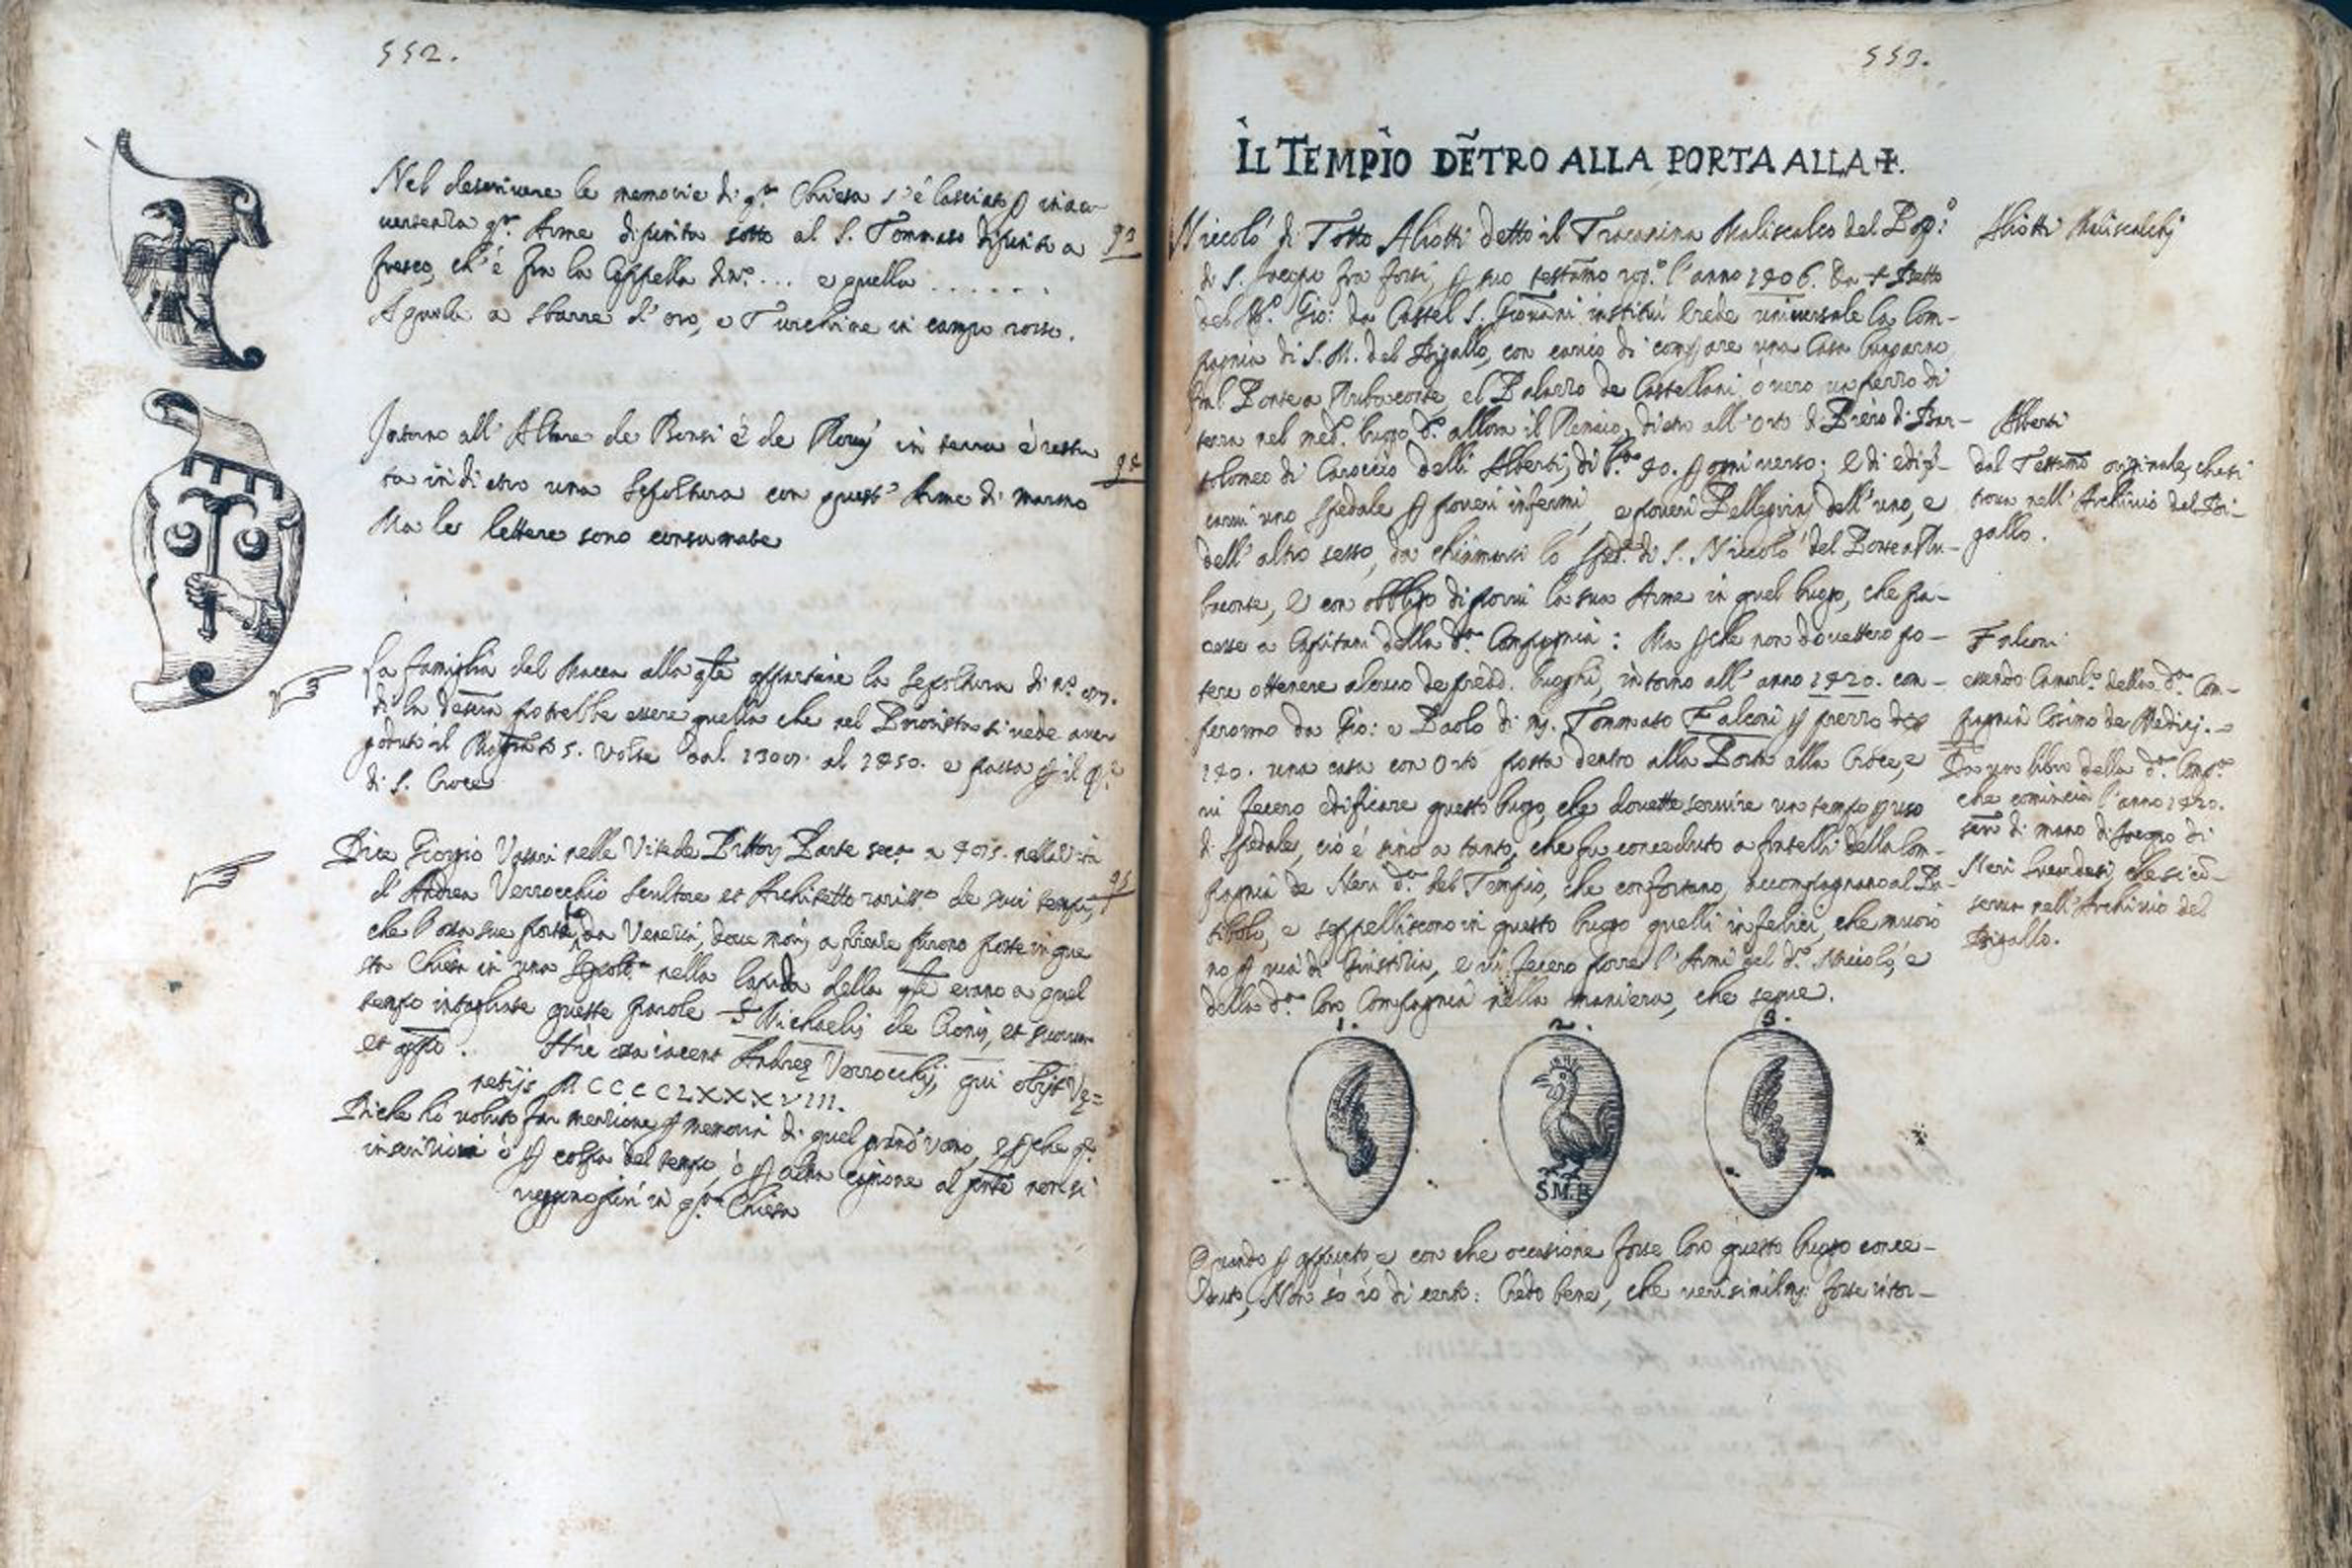 552.
Nel descrivere le memorie di q.ta Chiesa s'è lasciato p inav-
vertenza q.ta Arme dipinta sotto al S. Tommaso dipinto a
fresco, ch'è fra la Cappella di n.o ... e quella ......
Aquila a sbarre d'oro, e Turchine in campo rosso.
93
Intorno all'Altare de Bensi è de in terra è resta
ta indietro una Sepoltura con quest'Arme di marmo
Ma le lettere sono consumate
La famiglia del Macca alla qle appartiene la Sepoltura di n.o
di la potrebbe essere quella che nel Priorista si vede aver
goduto il 5. volte dal al 1450. e passa p il
di S. Croce
Dice Giorgio Vasari nelle Vite de Pittori Parte sec.a a nella Vita
95
d'Andrea Verrocchio Scultore et Architetto de suoi tempi,
che l'ossa sue da Venezia, dove morì, a firenze furono poste in que
sta Chiesa in una Sepolt.a nella lapida della qle erano a quel
tempo intagliate queste parole S. Michaelis de Cionis, et suorum
et Hic ossa iacent Andreę Verrocchij, qui obijt Vę=
netijs MCCCCLXXXVIII.
ho voluto far menzione p memoria di quel grand'uomo, e pche q.ta
inscrizione ò p colpa del tempo, ò p altra cagione al pnte non si
vegga piu in q.ta Chiesa
553.
IL TEMPIO DE̅TRO ALLA PORTA ALLA ✝.
Niccolò di Totto Aliotti detto il Tracanina Maliscalco del Pop.o
di S. Jacopo tra fossi, p suo testamo rog.o l'anno 1406. Da S. Betto
del M.o Gio: da Castel S. Giovanni instituì erede universale la Com-
pagnia di S. M. del Bigallo, con carico di comprare una Casa
fra'l Ponte a Rubaconte, el Palazzo de Castellani ò vero un pezzo di
terra nel med.o luogo d.o allora il Renaio, dietro all'Orto di Piero di Bar-
tolomeo di Caroccio delli Alberti, di 40. p ogni verso; E di edifi-
carvi uno Spedale p poveri infermi, e poveri Pellegrini dell'uno, e
dell'altro sesso, da chiamarsi lo Sped.e di S. Niccolò del Ponte a Ru-
baconte, E con obbligo di porvi la sua Arme in quel luogo, che pia-
cesse a Capitani della d.a Compagnia: Ma pche non dovettero po-
tere ottenere alcuno de predd. luoghi, intorno all'anno 1420. com-
perorno da Gio: e Paolo di m. Tommaso Falconi p prezzo di
140. una casa con Orto posta dentro alla Porta alla Croce, e
vi fecero edificare questo luogo, che dovette servire un tempo p uso
di Spedale, ciò è sino a tanto, che fu conceduto a fratelli della Com-
pagnia de Neri d.a del Tempio, che confortano, accompagnano al Pa-
tibolo, e seppelliscono in questo luogo quelli infelici, che muoio
no p via di Giustizia, e vi fecero porre l'Armi del d.o Niccolò, e
della d.a loro Compagnia nella maniera, che segue.
1. 2. 3.
S.M.B
Quando p appunto, e con che occasione fosse loro questo luogo conce-
duto, Non sò io di certo: Credo bene, che verisimilm: fosse intor-
Aliotti Maliscalchi
Alberti
dal Testamo originale, che si
trova nell'Archivio del Bi-
gallo.
Falconi
essendo Camarl.o della d.a Com-
pagnia Cosimo de Medici.
Da un libro della d.a Comp.a
che comincia l'anno 1420.
di mano di Jacopo di
Neri che si con-
serva nell'Archivio del
Bigallo.